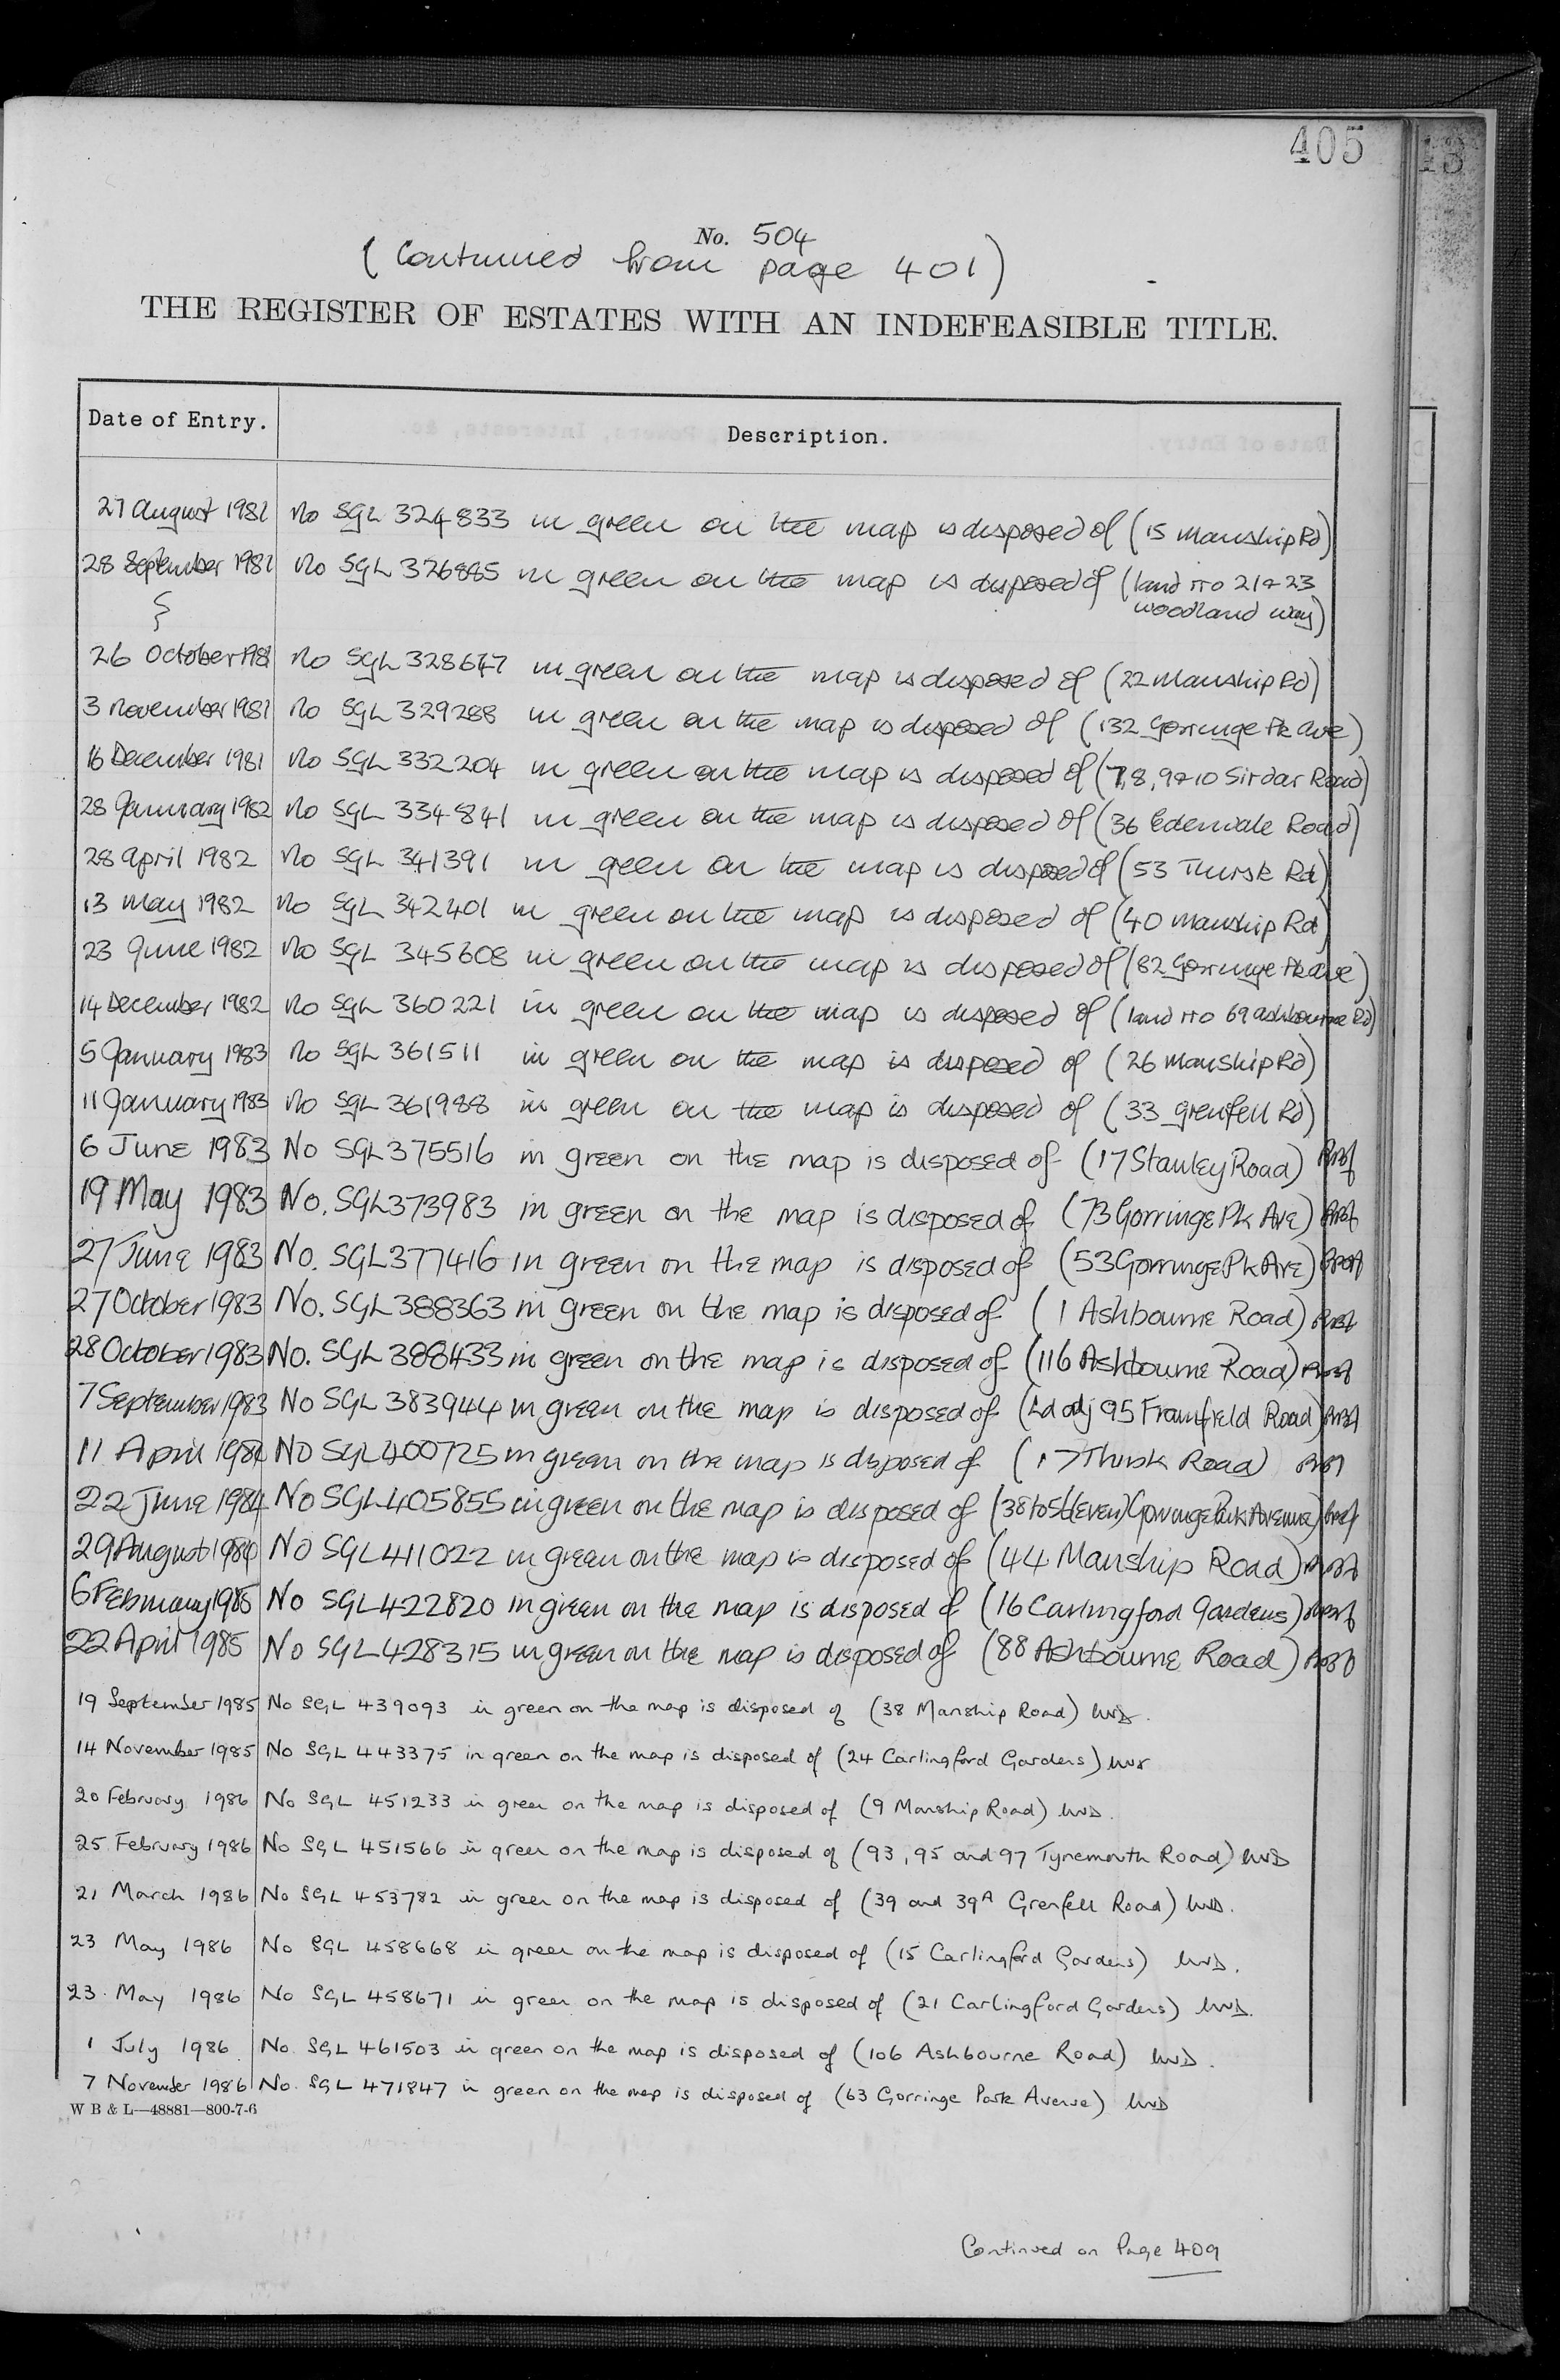 405
13
No. 504
(Continued from page 401)
THE REGISTER OF ESTATES WITH AN INDEFEASIBLE TITLE.
Date of Entry. Description.
27 August 1981 No SGL 324833 in green on the map is disposed of (15 Manship Rd)
28 September 1981 No SGL 326885 in green on the map is disposed of (land r/o 21 & 23
Woodland Way)
26 October 1981 No SGL 328647 in green on the map is disposed of (22 Manship Rd)
3 November 1981 No SGL 329288 in green on the map is disposed of (132 Gorringe Pk Ave)
16 December 1981 No SGL 332204 in green on the map is disposed of (7, 8, 9 & 10 Sirdar Road)
28 January 1982 No SGL 334841 in green on the map is disposed of (36 Edenvale Road)
28 April 1982 No SGL 341391 in green on the map is disposed of (53 Thirsk Rd)
13 May 1982 No SGL 342401 in green on the map is disposed of (40 Manship Rd)
23 June 1982 No SGL 345608 in green on the map is disposed of (82 Gorringe Pk Ave)
14 December 1982 No SGL 360221 in green on the map is disposed of (land r/o 69 Ashbourne Rd)
5 January 1983 No SGL 361511 in green on the map is disposed of (26 Manship Rd)
11 January 1983 No SGL 361988 in green on the map is disposed of (33 Grenfell Rd)
6 June 1983 No SGL375516 in green on the map is disposed of (17 Stanley Road)
19 May 1983 No. SGL373983 in green on the map is disposed of (73 Gorringe Pk Ave)
27 June 1983 No. SGL377416 in green on the map is disposed of (53 Gorringe Pk Ave)
27 October 1983 No. SGL388363 in green on the map is disposed of (1 Ashbourne Road)
28 October 1983 No. SGL388433 in green on the map is disposed of (116 Ashbourne Road)
7 September 1983 No SGL383944 in green on the map is disposed of (Ld adj 95 Framfield Road)
11 April 1984 No SGL400725 in green on the map is disposed of (17 Thirsk Road)
22 June 1984 No SGL405855 in green on the map is disposed of (38 to 54 (even) Gorringe Park Avenue)
29 August 1984 No SGL411022 in green on the map is disposed of (44 Manship Road)
6 February 1985 No SGL422820 in green on the map is disposed of (16 Carlingford Gardens)
22 April 1985 No SGL428315 in green on the map is disposed of (88 Ashbourne Road)
19 September 1985 No SGL 439093 in green on the map is disposed of (38 Manship Road)
14 November 1985 No SGL 443375 in green on the map is disposed of (24 Carlingford Gardens)
20 February 1986 No SGL 451233 in green on the map is disposed of (9 Manship Road)
25 February 1986 No SGL 451566 in green on the map is disposed of (93, 95 and 97 Tynemouth Road)
21 March 1986 No SGL 453782 in green on the map is disposed of (39 and 39A Grenfell Road)
23 May 1986 No SGL 458668 in green on the map is disposed of (15 Carlingford Gardens)
23 May 1986 No SGL 458671 in green on the map is disposed of (21 Carlingford Gardens)
1 July 1986 No. SGL 461503 in green on the map is disposed of (106 Ashbourne Road)
7 November 1986 No. SGL 471847 in green on the map is disposed of (63 Gorringe Park Avenue)
W B & L—48881—800-7-6
Continued on Page 409